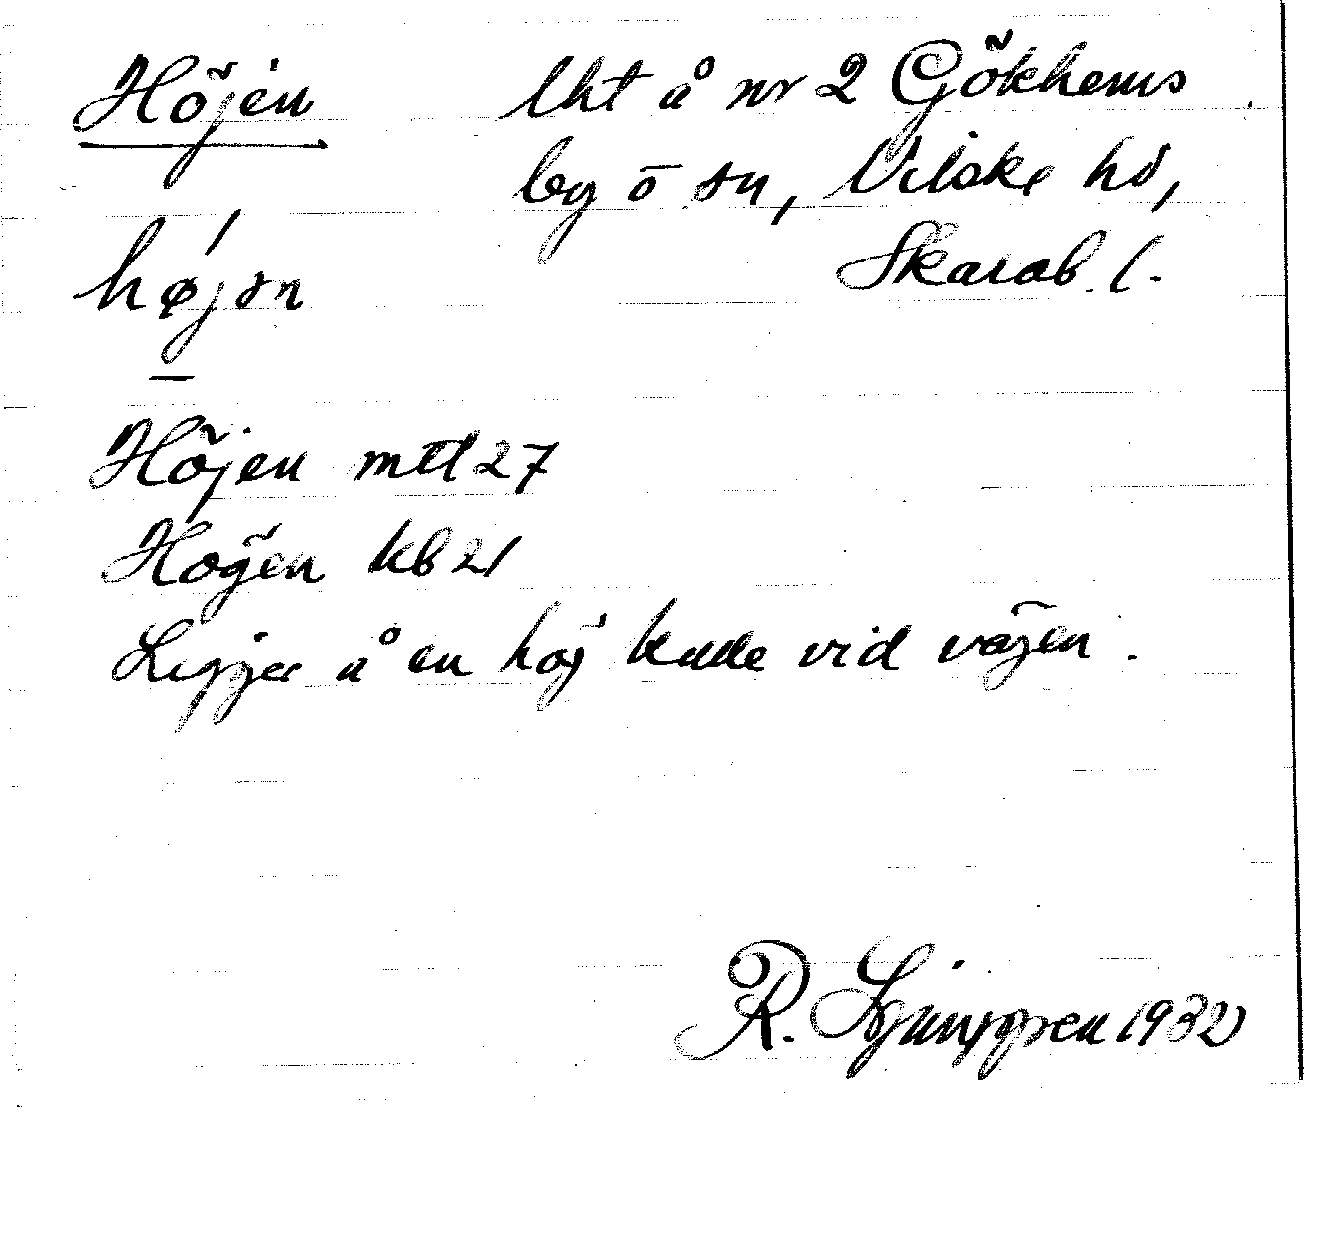 Höjen lht å nr 2 Gökhems
by o sn, Vilske hd,
Skarab. l.
højən
Höjen mtl 27
Högen kb 21
Ligger å en höj kulle vid vägen.
R. Ljunggren 1932